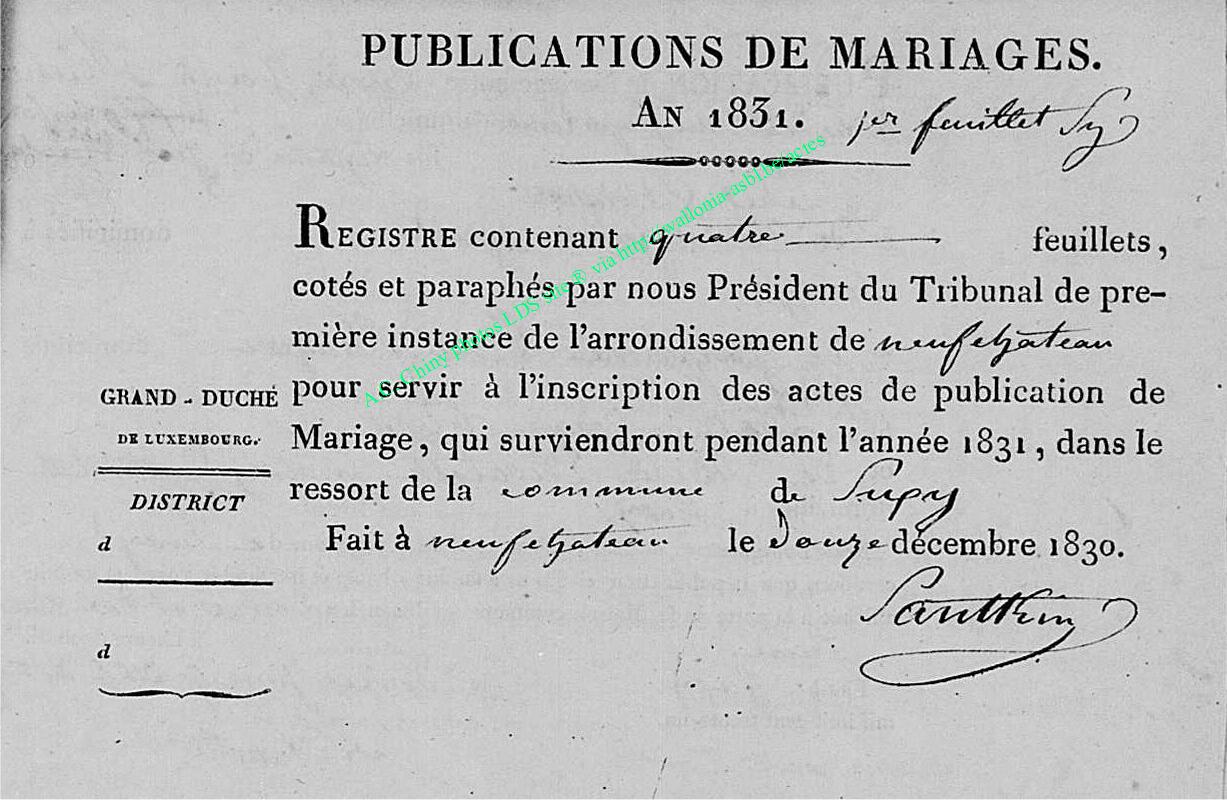 PUBLICATIONS DE MARIAGES.
AN 1831. 1er feuillet Sy
REGISTRE contenant quatre feuillets,
cotés et paraphés par nous Président du Tribunal de pre-
mière instance de l'arrondissement de neufchateau
pour servir à l'inscription des actes de publication de
Mariage, qui surviendront pendant l'année 1831, dans le
ressort de la commune de Supy
Fait à neufchateau le Douze décembre 1830.
GRAND-DUCHÉ
DE LUXEMBOURG.
DISTRICT
d
d
A.G. Chiny photos LDS site® via http://wallonia-asbl.be/actes